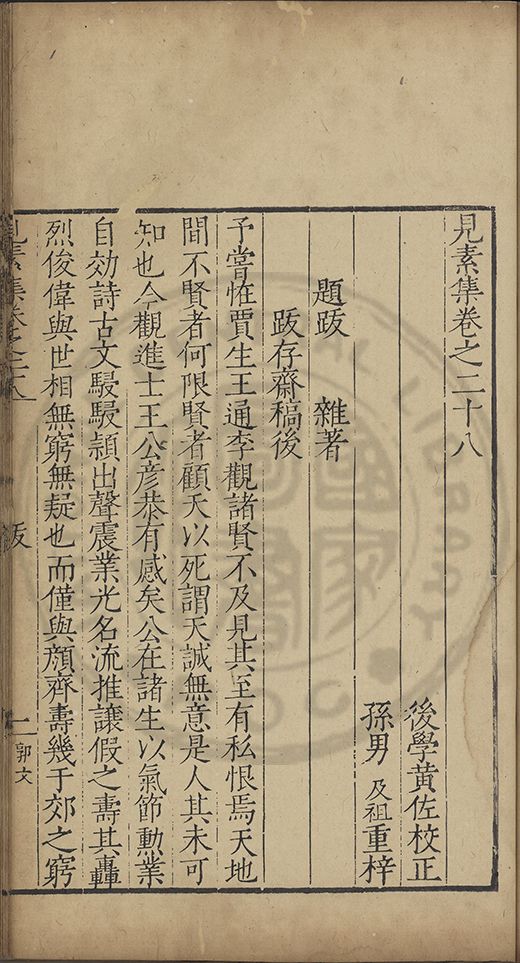 見素集卷之二十八
後學黃佐校正
孫男及祖重梓
題跋 雜著
跋存齋稿後
予嘗恠賈生王通李觀諸賢不及見其至有私恨焉天地
間不賢者何限賢者顧夭以死謂天誠無意是人其未可
知也今觀進士王公彥恭有感矣公在諸生以氣節勳業
自効詩古文駸駸頴出聲震業光名流推讓假之壽其轟
烈俊偉與世相無窮無疑也而僅與顏齊壽幾于郊之窮
見素集卷之二十八 跋 一 郭文